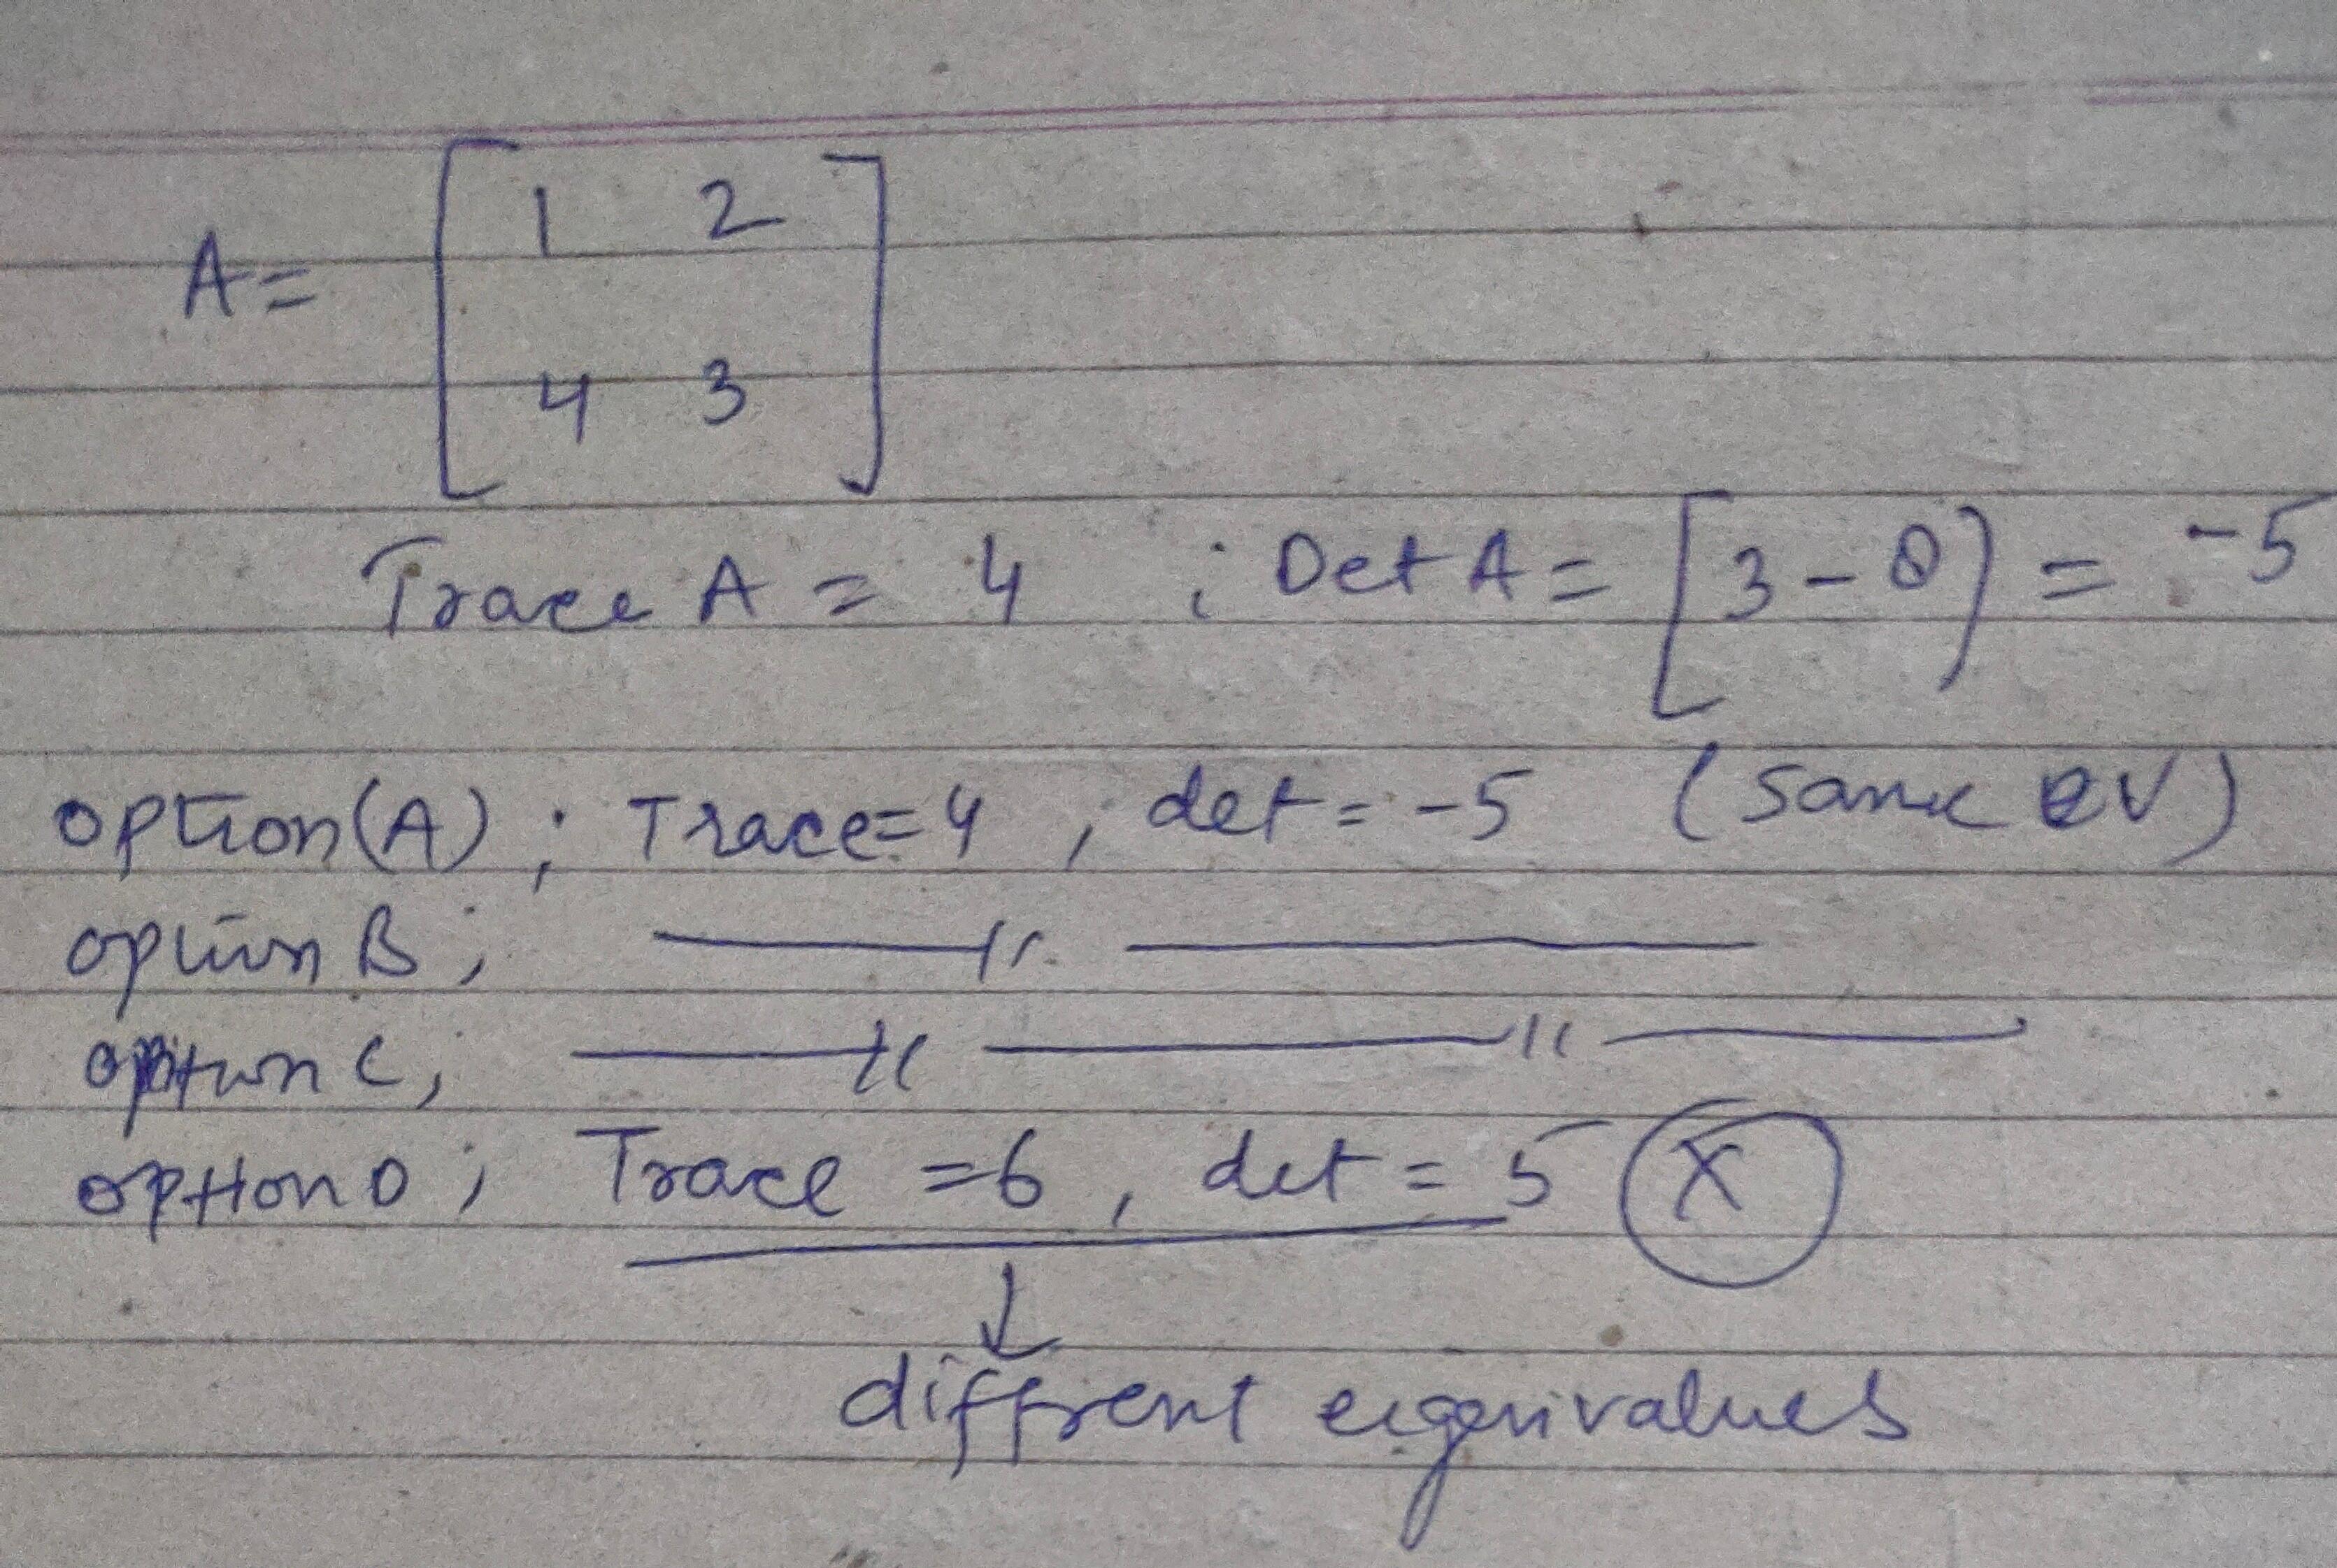 A = [ 1 2
4 3 ]
Trace A = 4 ; Det A = [3 - 8] = -5
option(A) ; Trace=4 , det = -5 (same ev)
option B ; —〃—
option C ; —〃—〃—
option D ; Trace =6 , det = 5 (X)
↓
diffrent eigenvalues